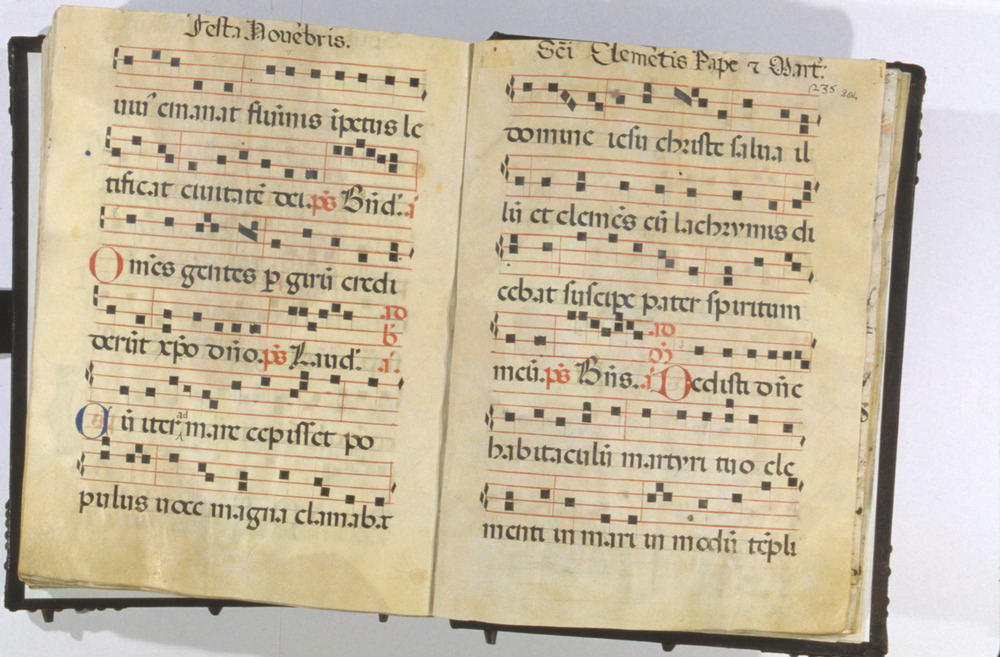 Festa Nouēbris.
uiui emanat fluuius īpetus le
tificat ciuitatē dei. p̄s Bn̄d. a
Omēs gentes p girū credi
ad
derūt xp̄o dn̄o. p̄s Laud. a
b
Cū iter ad mare cepisset po
pulus uoce magna clamabat
Sc̄i Clemētis Pape ⁊ Mart:
235
domine iesu christe salua il
lū et clemēs cū lachrymis di
cebat suscipe pater spiritum
ad
meū. p̄s Bn̄s. a Dedisti dn̄e
habitaculū martyri tuo cle
menti in mari in modū tēpli